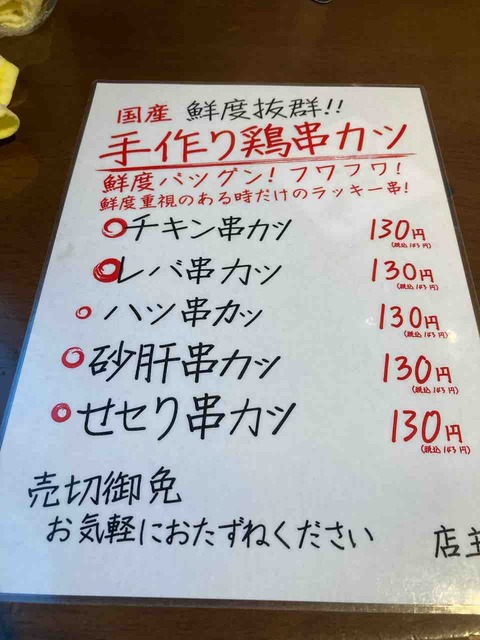 国産 鮮度抜群!!
手作り鶏串カツ
鮮度バツグン! フワフワ!
鮮度重視のある時だけのラッキー串!
チキン串カツ 130円
(税込143円)
レバ串カツ 130円
(税込143円)
ハツ串カツ 130円
(税込143円)
砂肝串カツ 130円
(税込143円)
せセリ串カツ 130円
(税込143円)
売切御免
お気軽におたずねください
店主